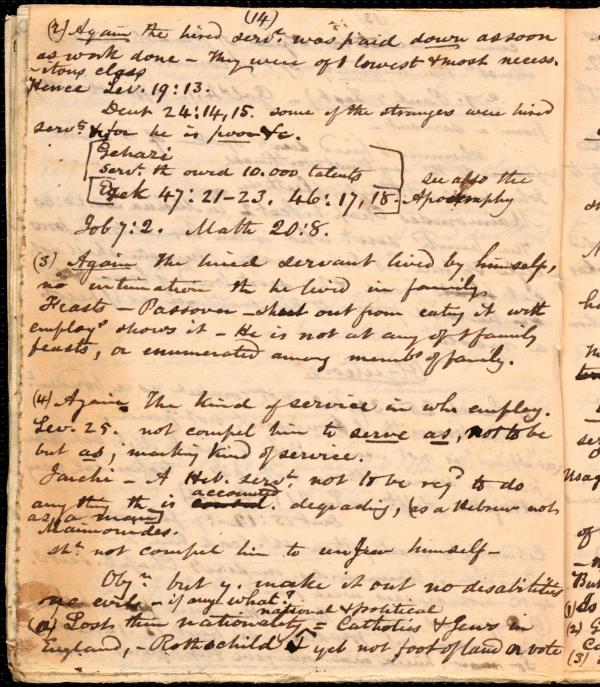 (14)
(2) Again the hired servt. was paid down as soon
as work done - They were of t lowest & most necess.
itous class
Hence Lev. 19:13.
Deut 24:14,15. some of the strangers were hired
servts & for he is poor &c.
Gehazi
servt. th owed 10.000 talents see also the
Ezek 47:21-23. 46:17,18. Apocryphy
Job 7:2. Math 20:8.
(3) Again The hired servant lived by himself,
no intimation th he lived in family.
Feasts - Passover - shut out from eatg it with
employr shows it - He is not at any of t family
feasts, or enumerated among membs of family.
(4) Again The kind of service in wh employ.
Lev. 25. not compel him to serve as, not to be
but as; marking kind of service.
Jarchi - A Heb. servt. not to be reqd to do
any thing th is accounted degrading, (as a Hebrew not
as a man)
Maimonides.
sh. not compel him to himself -
Objn. but y. make it out no disabilities
no evils - if any what?
national & political
(1) Lost their nationality = Catholics & Jews in
England, - Rothschild yet not foot of land or vote